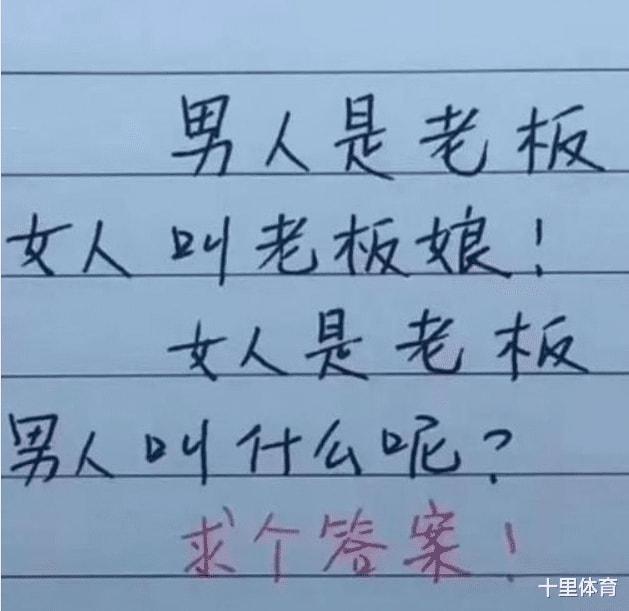 男人是老板
女人叫老板娘！
女人是老板
男人叫什么呢？
求个答案！
十里体育